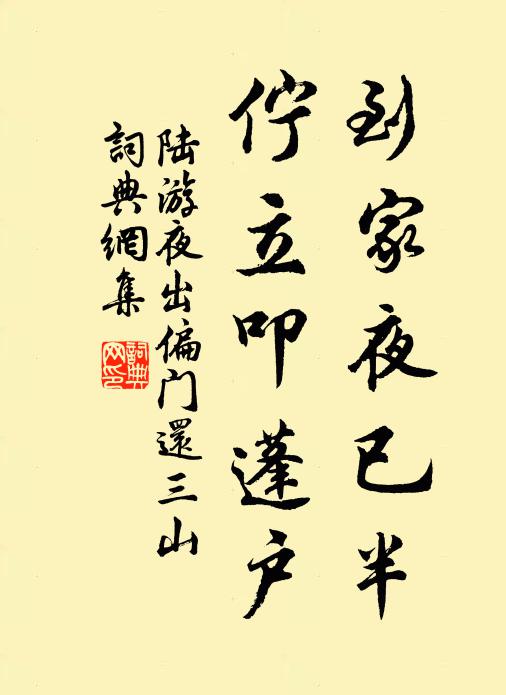 到家夜已半
佇立叩蓬户
陆游夜出偏门還三山
詞典網集
詞典网印